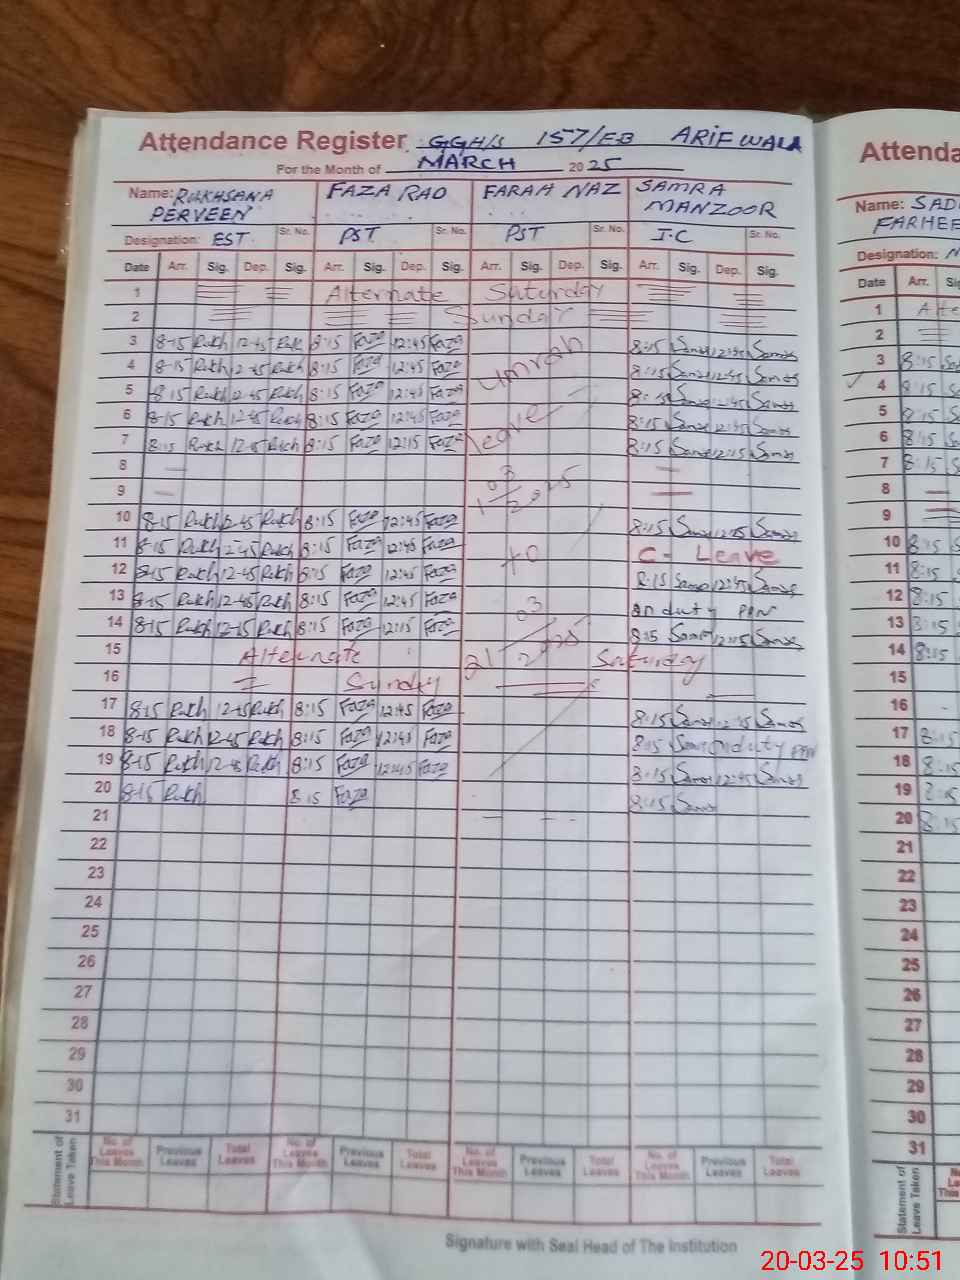 Attendance Register GGHS 157/EB ARIFWALA
For the Month of MARCH 2025
Name: RUKHSANA PERVEEN FAZA RAO FARAH NAZ SAMRA MANZOOR
Designation: EST Sr. No. PST Sr. No. PST Sr. No. I.C Sr. No.
Date Arr. Sig. Dep. Sig. Arr. Sig. Dep. Sig. Arr. Sig. Dep. Sig. Arr. Sig. Dep. Sig.
1 Alternate Saturday
2 Sunday
3 8-15 Rukh 12-45 Ruk 8:15 Faza 12:45 Faza Umrah 8:15 Samra 12:45 Samra
4 8-15 Rukh 12-45 Rukh 8:15 Faza 12:45 Faza 8:15 Samra 12:45 Samra
5 8-15 Rukh 12-45 Rukh 8:15 Faza 12:45 Faza 8:15 Samra 12:45 Samra
6 8-15 Rukh 12-45 Rukh 8:15 Faza 12:45 Faza leave 8:15 Samra 12:45 Samra
7 8:15 Rukh 8:15 Faza 12:15 Faza 8:15 Samra 12:15 Samra
8
9
10 8-15 Rukh 12-45 Rukh 8:15 Faza 12:45 Faza 8:15 Samra Samra
11 8-15 Rukh 12-45 Rukh 8:15 Faza 12:45 Faza to C- Leave
12 8-15 Rukh 12-45 Rukh 8:15 Faza 12:45 Faza 8:15 Samra 12:45 Samra
13 8-15 Rukh 12-45 Rukh 8:15 Faza 12:45 Faza 03 on duty
14 8-15 Rukh 12-15 Rukh 8:15 Faza 12:15 Faza 8:15 Samra 12:15 Samra
15 Alternate 21 Saturday
16 Sunday
17 8-15 Rukh 12-45 Rukh 8:15 Faza 12:45 Faza 8:15 Samra 12:45 Samra
18 8-15 Rukh 12-45 Rukh 8:15 Faza 12:45 Faza 8:15 Samra on duty
19 8-15 Rukh 12-45 Rukh 8:15 Faza 12:45 Faza 8:15 Samra 12:45 Samra
20 8-15 Rukh 8:15 Faza 8:15 Samra
21
22
23
24
25
26
27
28
29
30
31
Statement of Leave Taken No. of Leaves This Month Previous Leaves Total Leaves No. of Leaves This Month Previous Leaves Total Leaves No. of Leaves This Month Previous Leaves Total Leaves No. of Leaves This Month Previous Leaves Total Leaves
Signature with Seal Head of The Institution
Attenda
Name: SAD
FARHEE
Designation:
Date Arr.
1
2
3 8:15
4 8:15
5 8:15
6 8:15
7 8:15
8
9
10 8:15
11 8:15
12 8:15
13 8:15
14 8:15
15
16
17 8:15
18 8:15
19 8:15
20 8:15
21
22
23
24
25
26
27
28
29
30
31
Statement of Leave Taken
20-03-25 10:51